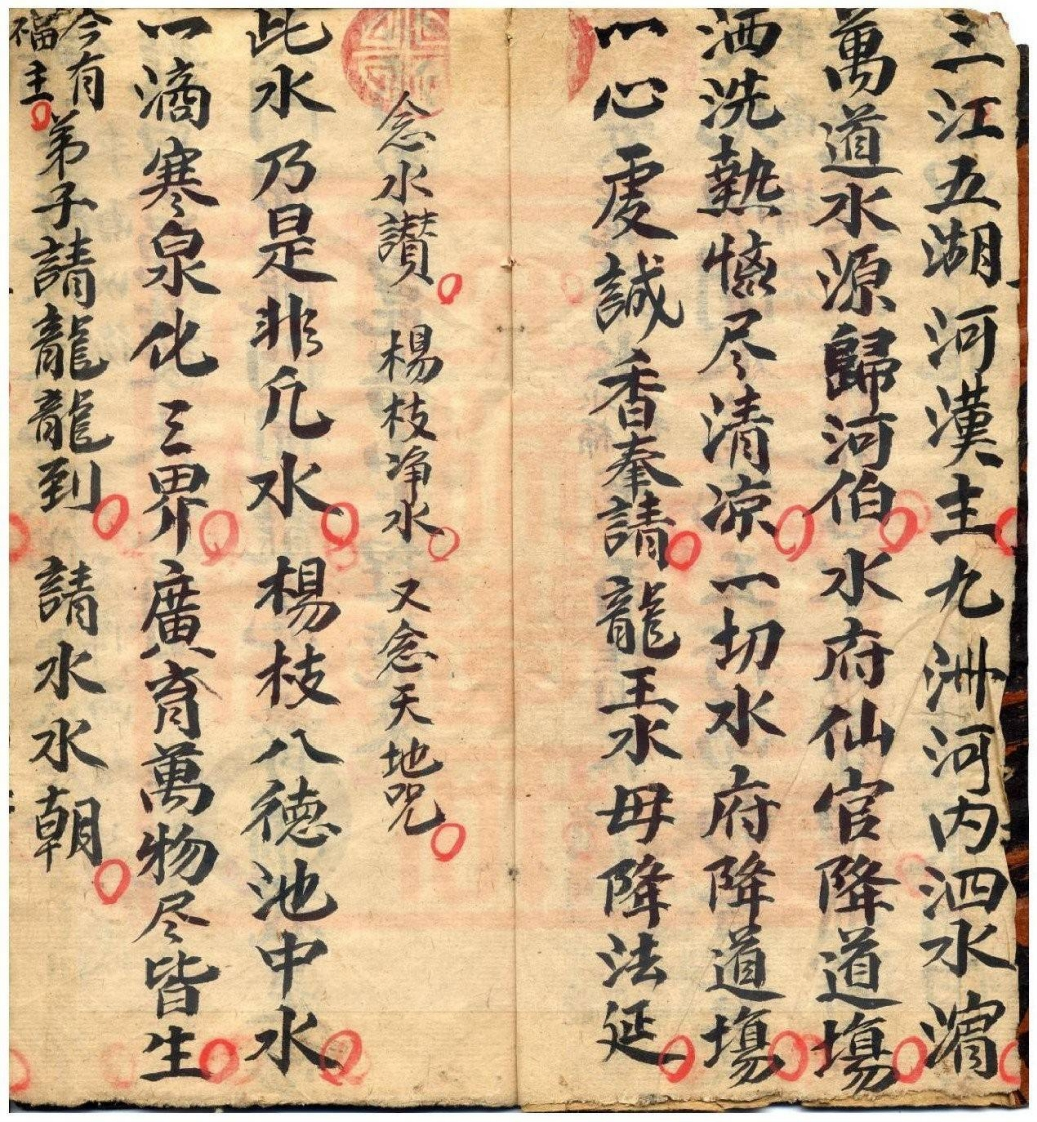 三江五湖河漢主 九洲河内泗水濵
萬道水源歸河伯 水府仙官降道塲
洒洗熱惱尽清凉 一切水府降道塲
一心虔誠香奉請 龍王水毋降法延
念水讃 楊枝净水 又念天地咒
此水乃是非凢水 楊枝八德池中水
一滴寒泉化三界 廣育萬物尽皆生
今有福主 弟子請龍龍到 請水水朝